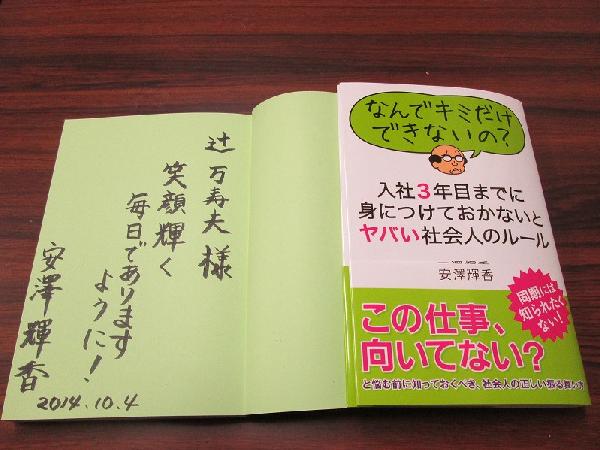 辻 万寿夫 様
笑顔輝く
毎日であります
ように!
安澤輝香
2014.10.4
なんでキミだけ
できないの?
入社3年目までに
身につけておかないと
ヤバい社会人のルール
安澤輝香
同期には
知られたく
ない!
この仕事、
向いてない?
と悩む前に知っておくべき、社会人の正しい振る舞い方